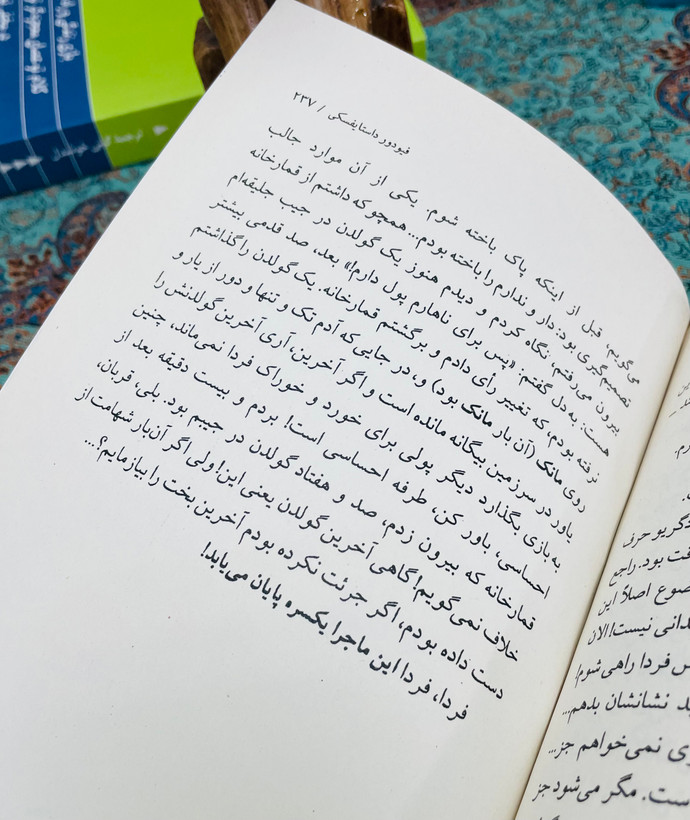 فیودور داستایفسکی / ۲۳۷
می‌گویم، قبل از اینکه پاک باخته شوم. یکی از آن موارد جالب
تصمیم‌گیری بود: دار و ندارم را باخته بودم... همچو که داشتم از قمارخانه
بیرون می‌رفتم، نگاه کردم و دیدم هنوز یک گولدن در جیب جلیقه‌ام
هست: به دل گفتم: «پس برای ناهارم پول دارم!» بعد، صد قدمی بیشتر
نرفته بودم، که تغییر رأی دادم و برگشتم قمارخانه. یک گولدن را گذاشتم
روی مانک (آن بار مانک بود) و، در جایی که آدم تک و تنها و دور از یار و
یاور در سرزمین بیگانه مانده است و اگر آخرین، آری آخرین گولدنش را
به بازی بگذارد دیگر پولی برای خورد و خوراک فردا نمی‌ماند، چنین
احساسی، باور کن، طرفه احساسی است! بردم و بیست دقیقه بعد از
قمارخانه که بیرون زدم، صد و هفتاد گولدن در جیبم بود. بلی، قربان،
خلاف نمی‌گویم! گاهی آخرین گولدن یعنی این! ولی اگر آن‌بار شهامت از
دست داده بودم، اگر جرئت نکرده بودم آخرین بخت را بیازمایم؟...
فردا، فردا این ماجرا یکسره پایان می‌یابد!
گریو حرف
فت بود. راجع
ضوع اصلاً این
دانی نیست! الان
س فردا راهی شوم!
ید نشانشان بدهم...
ری نمی‌خواهم جز...
ست. مگر می‌شود جز